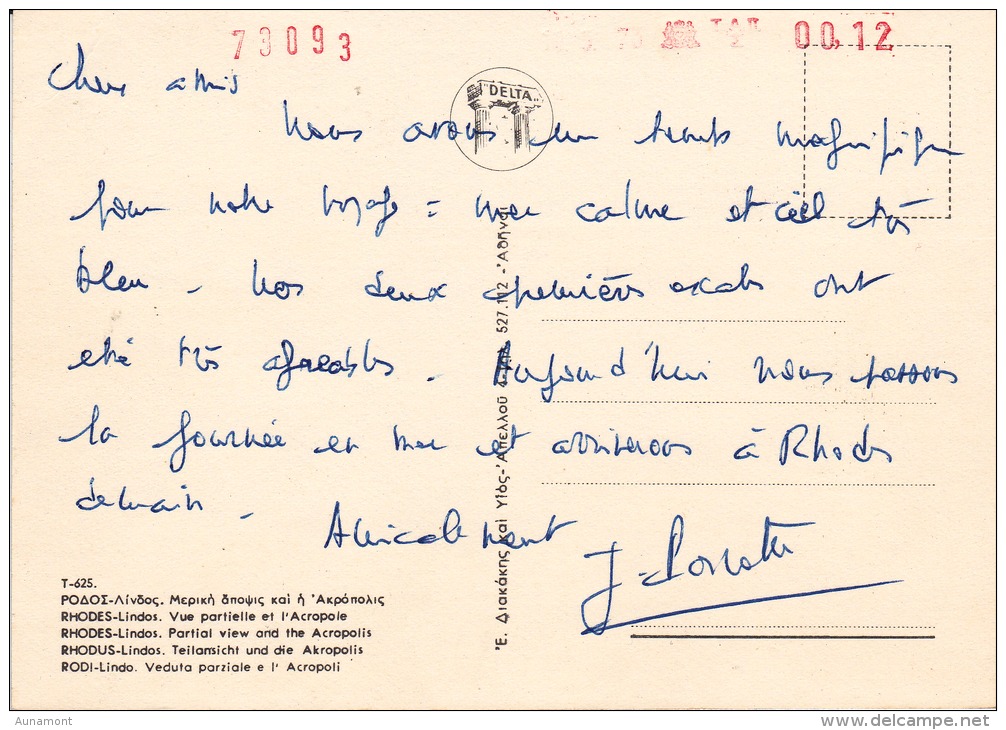 73093 TAR 2 00.12
Chers amis
"DELTA"
Nous avons un temps magnifique
pour notre voyage = mer calme et ciel très
bleu - Nos deux premières escales ont
été très agréables. Aujourd'hui nous passons
la journée en mer et arriverons à Rhodes
demain -
Amicalement
J.
Έ. Διακάκης καὶ Υἱός-Ἀπελλοῦ 4-Τηλ. 527.112 -Ἀθῆναι
T-625.
ΡΟΔΟΣ-Λίνδος. Μερική ἄποψις καί ἡ Ἀκρόπολις
RHODES-Lindos. Vue partielle et l'Acropole
RHODES-Lindos. Partial view and the Acropolis
RHODUS-Lindos. Teilansicht und die Akropolis
RODI-Lindo. Veduta parziale e l' Acropoli
Aunamont
www.delcampe.net